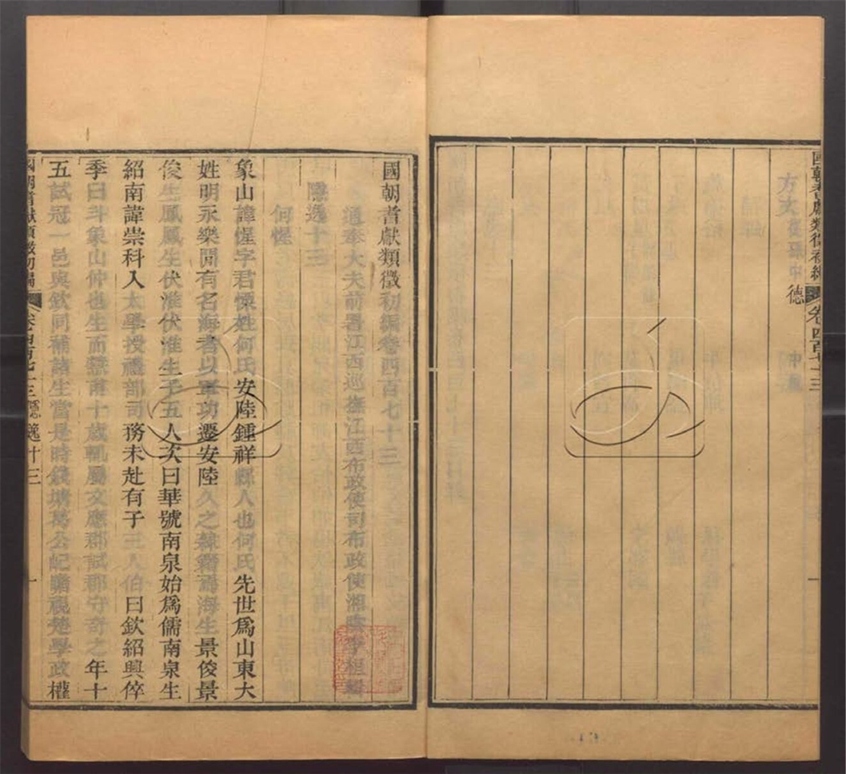 方文
中德
國朝耆獻類徵初編
卷四百七十三
國朝耆獻類徵初編卷四百七十三
通奉大夫前署江西巡撫江西布政使司布政使湘陰李桓輯
隱逸十三
何惺
象山諱惺字君慄姓何氏安陸鍾祥縣人也何氏先世爲山東大
姓明永樂閒有名海者以軍功遷安陸久之隸籍焉海生景俊景
俊生鳳鳳生伏淮伏淮生子五人次曰華號南泉始爲儒南泉生
紹南諱崇科入太學授禮部司務未赴有子三人伯曰欽紹興倅
季曰斗象山仲也生而警甫十歲輒屬文應郡試郡守奇之年十
五試冠一邑與欽同補諸生當是時錢塘葛公屺瞻視楚學政權
國朝耆獻類徵初編 卷四百七十三 隱逸十三 一